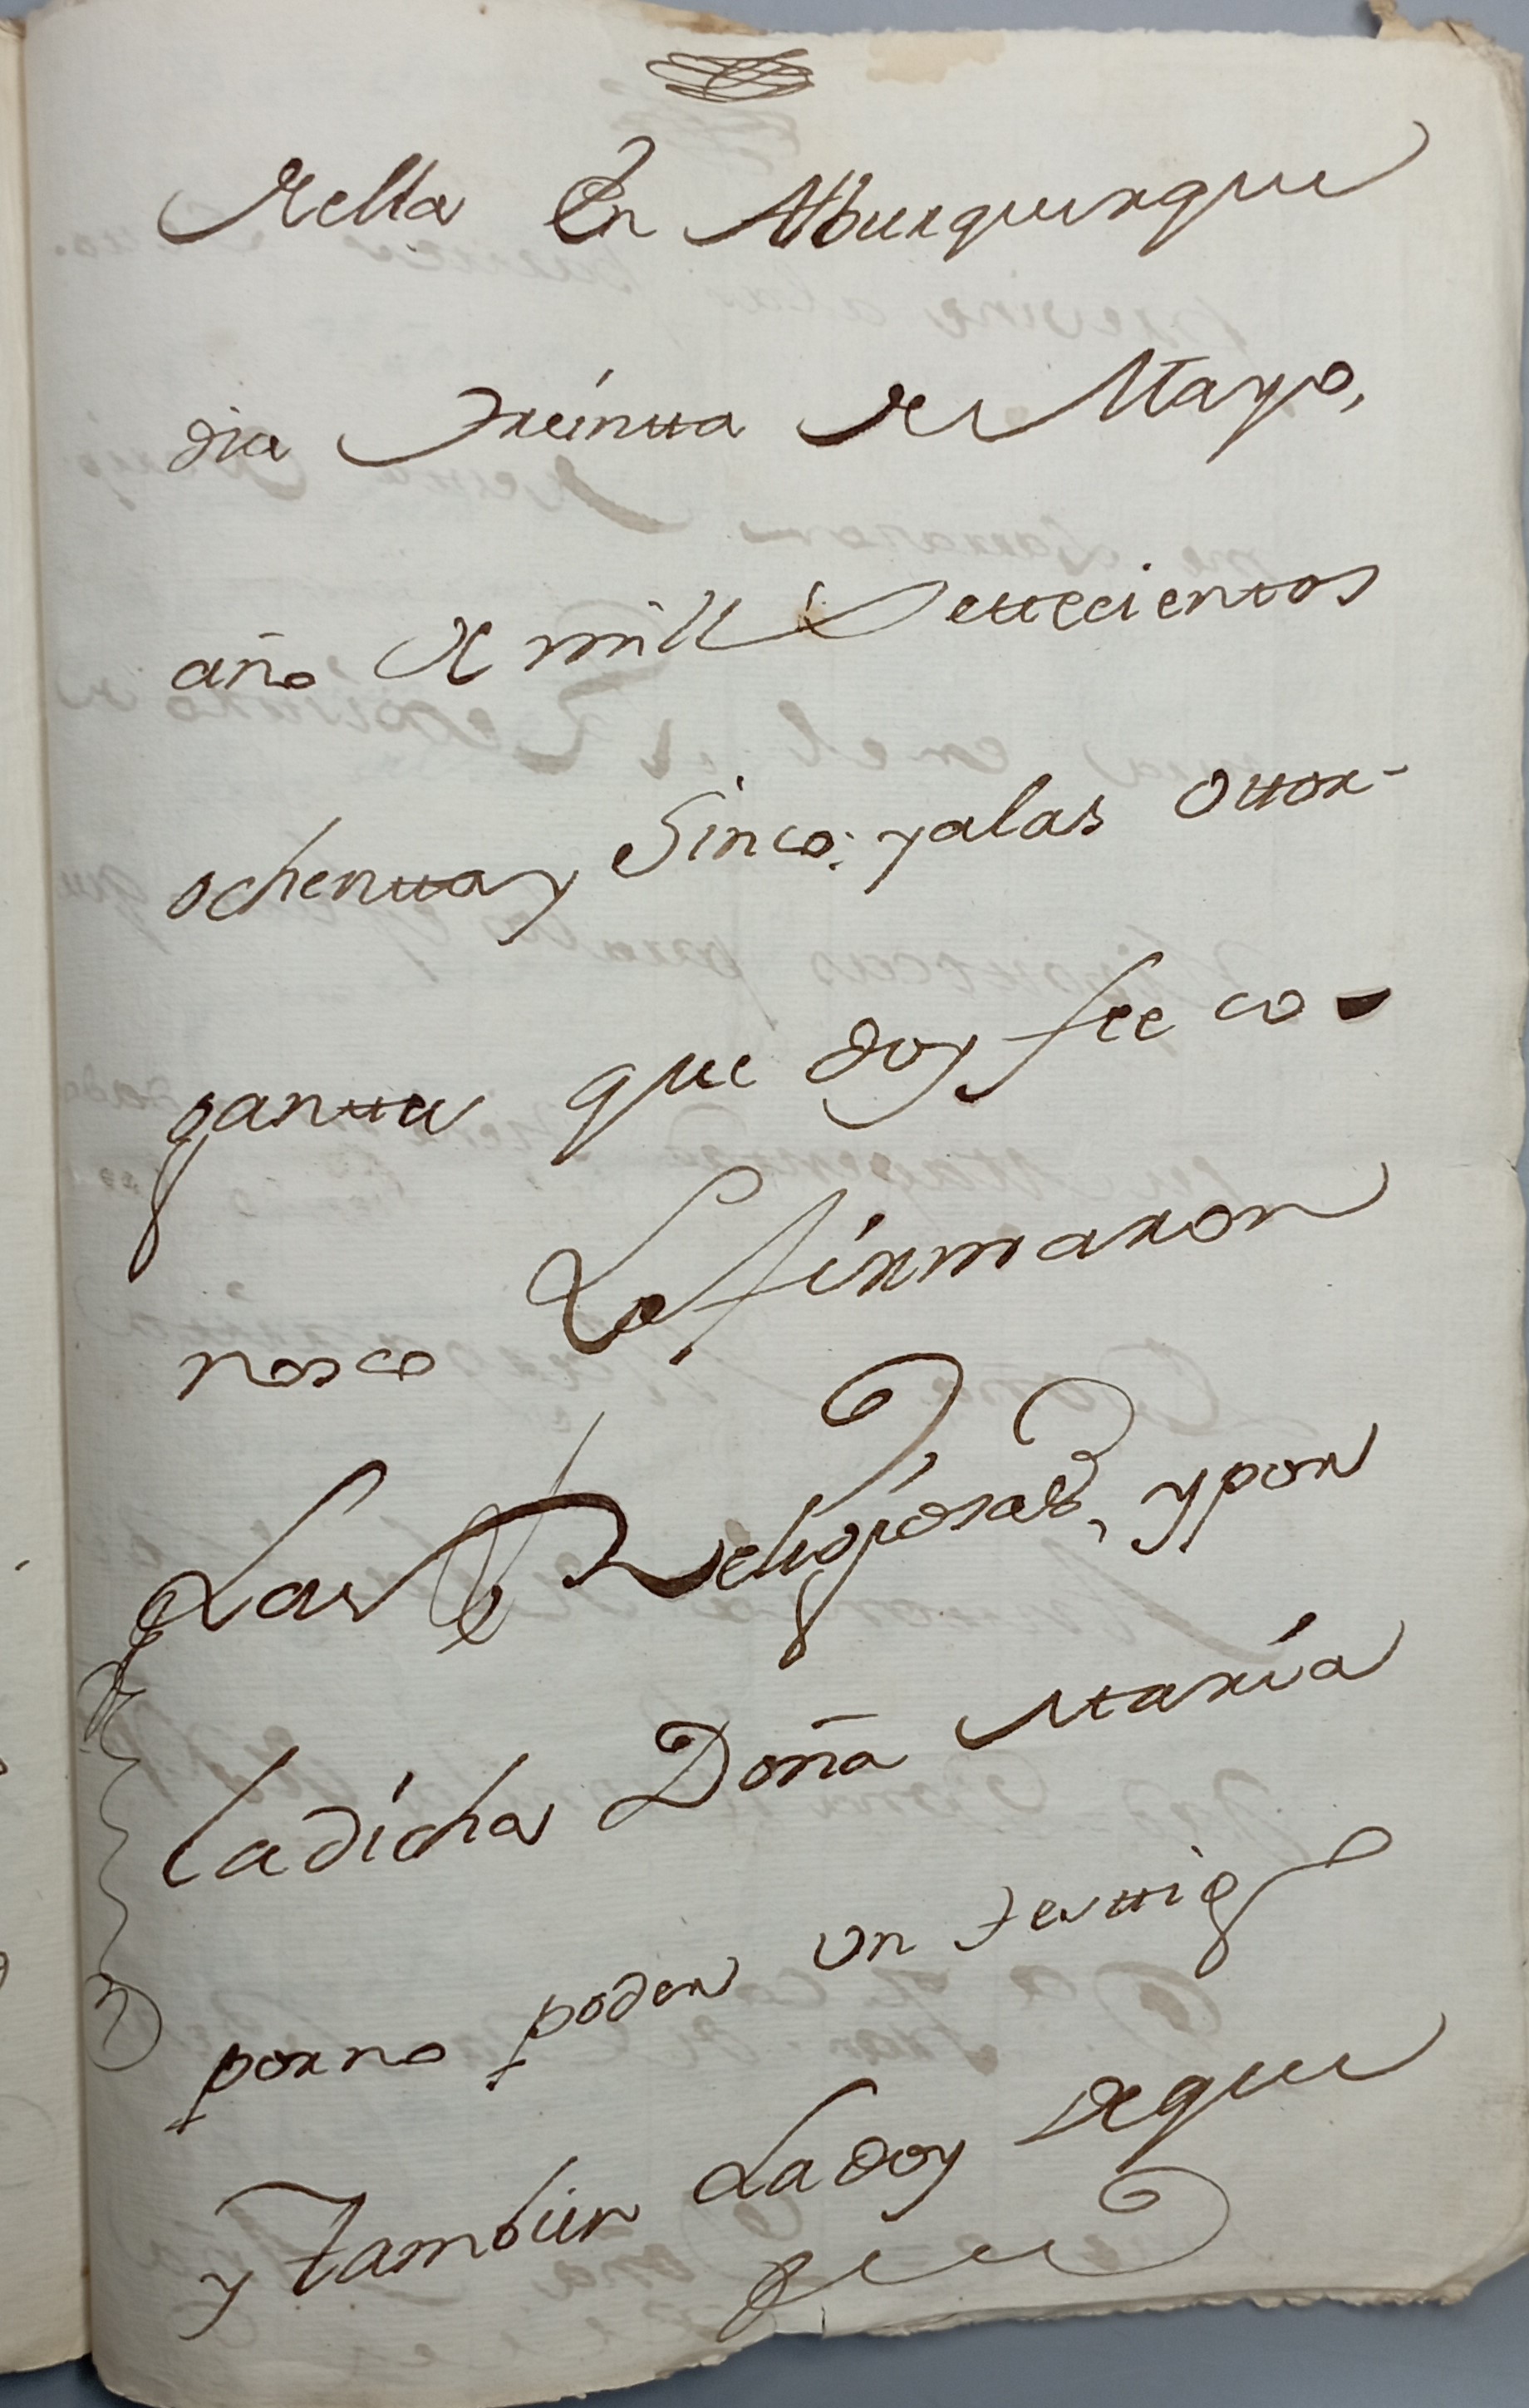 della En Alburquerque
dia treintta de Mayo,
año de mill Settecienttos
ochentta y Sinco; y alas ottor-
ganttes que doy fee co-
nosco Lo firmaron
Las Religiosas, y por
la dicha Doña Maria
por no poder un testtigo
y tambien La doy de que